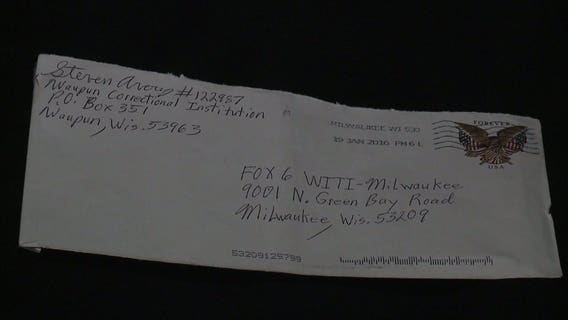 Steven Avery #122987
Waupun Correctional Institution
P.O. Box 351
Waupun, Wis. 53963
MILWAUKEE WI 530
19 JAN 2016 PM 6 L
FOREVER
USA
FOX 6 WITI-Milwaukee
9001 N. Green Bay Road
Milwaukee, Wis. 53209
53209125799